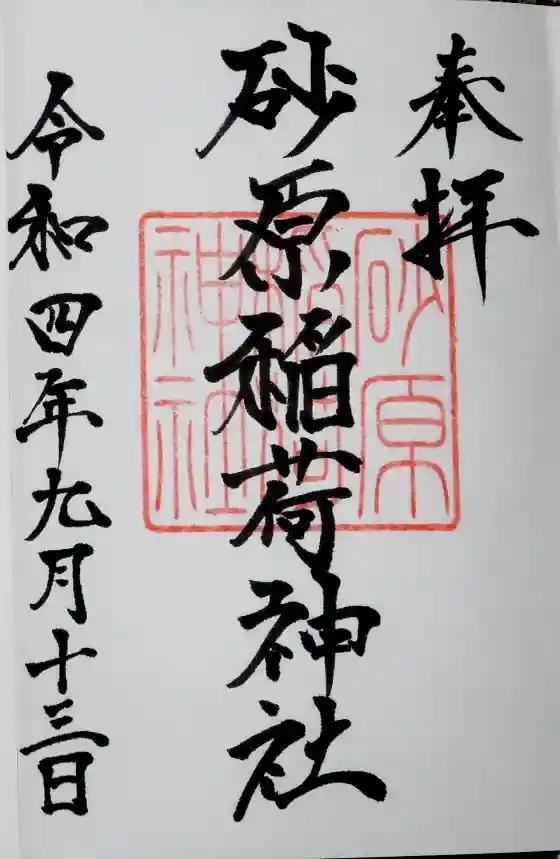 奉拝
砂原稲荷神社
砂原
稲荷
神社
令和四年九月十三日